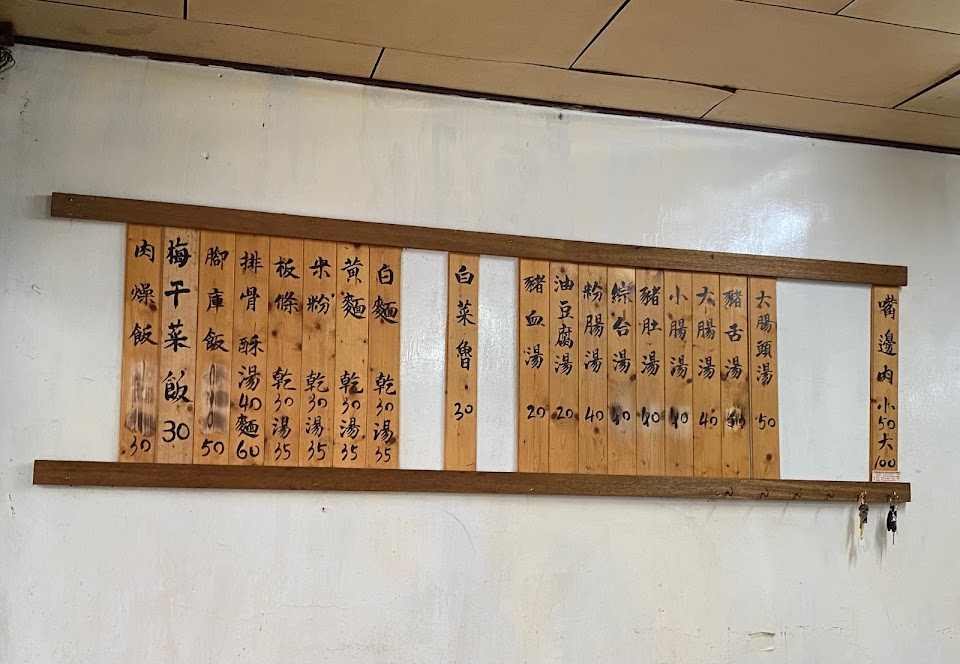 肉燥飯 30
梅干菜飯 30
腳庫飯 50
排骨酥湯40麵60
板條 乾30湯35
米粉 乾30湯35
黃麵 乾30湯35
白麵 乾30湯35
白菜魯 30
豬血湯 20
油豆腐湯 20
粉腸湯 40
綜合湯 40
豬肚湯 40
小腸湯 40
大腸湯 40
豬舌湯
大腸頭湯 50
嘴邊肉 小50大100